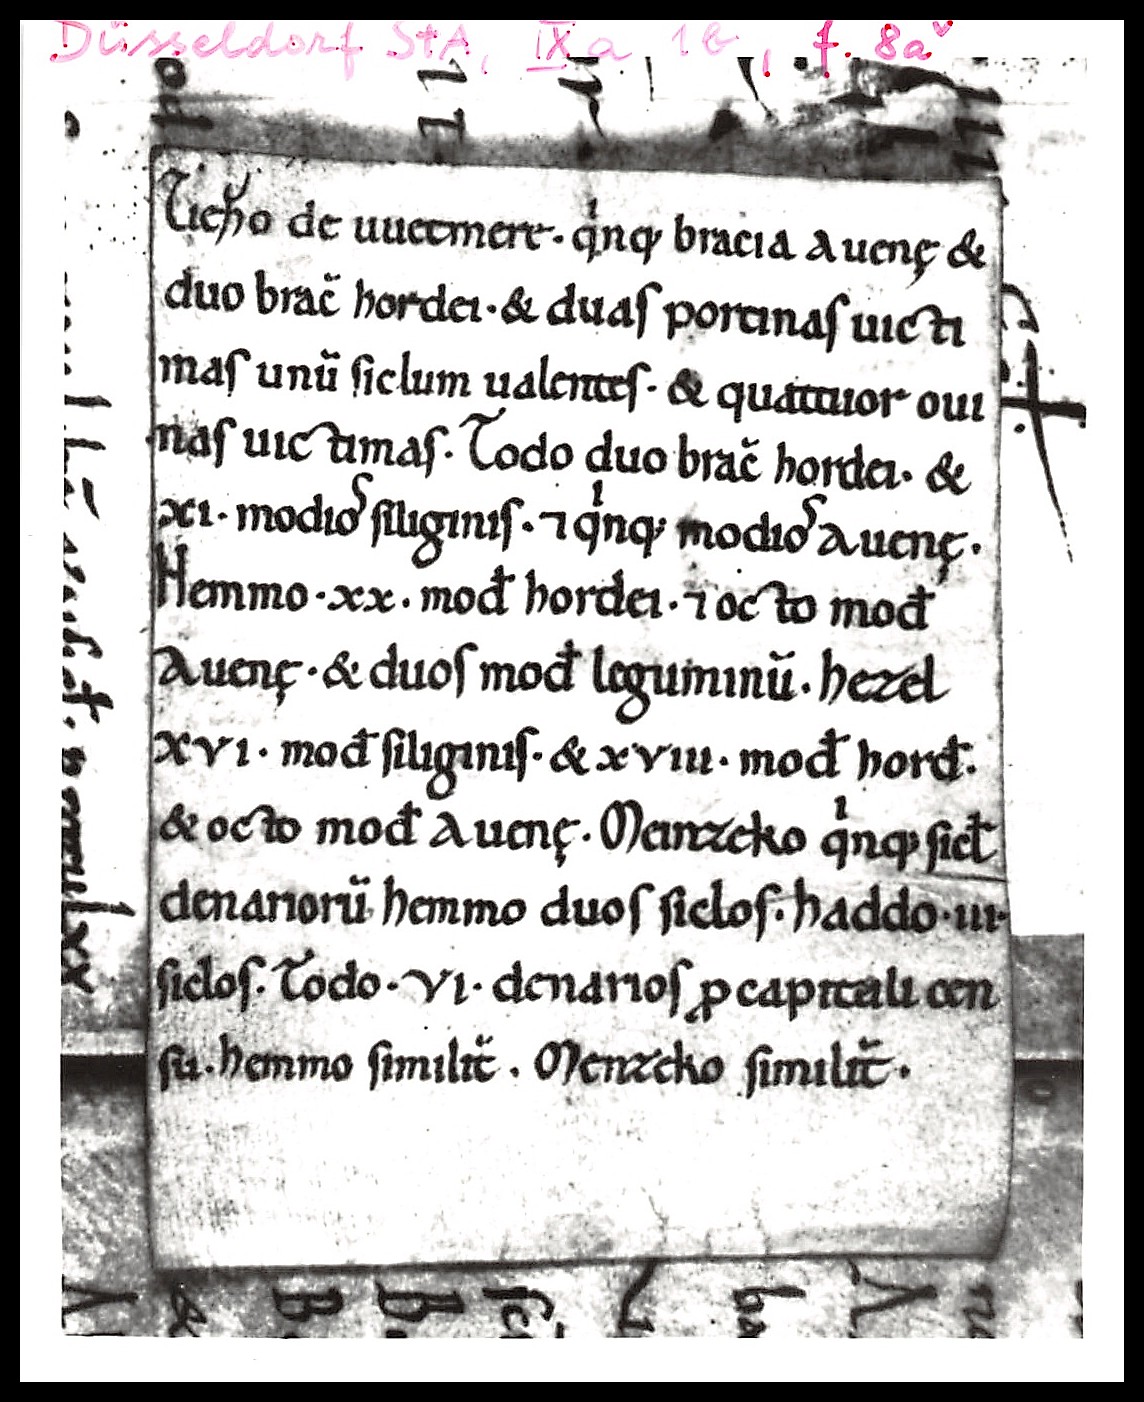 Düsseldorf StA, IX a 1b, f. 8aᵛ
Ticͪo de uuetmere. qͥnqꝫ bracia auenę &
duo brac̄ hordei. & duas porcinas uicti
mas unū siclum ualentes. & quattuor oui
nas uictimas. Todo duo brac̄ hordei. &
xi. modios siliginis. ⁊ qͥnqꝫ modios auenę.
Hemmo. xx. mod̄ hordei. ⁊ octo mod̄
auenę. & duos mod̄ leguminū. hezel
xvi. mod̄ siliginis. & xviii. mod̄ hord̄.
& octo mod̄ auenę. Meinzcko qͥnqꝫ sicł
denariorū hemmo duos siclos. haddo. iii.
siclos. Todo. vi. denarios ꝓ capitali cen
su. hemmo similit̄. Menzcko similit̄.